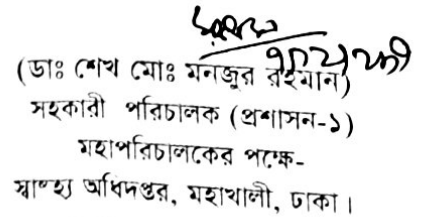 (ডাঃ শেখ মোঃ মনজুর রহমান)
সহকারী পরিচালক (প্রশাসন-১)
মহাপরিচালকের পক্ষে-
স্বাস্হ্য অধিদপ্তর, মহাখালী, ঢাকা।